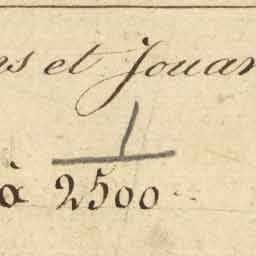 et Jouan
1
à 2500